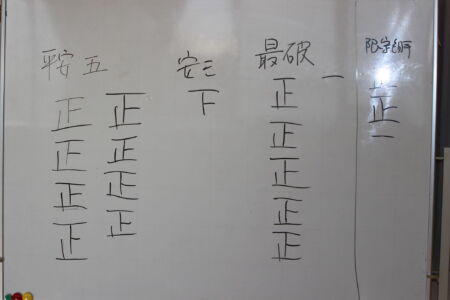 平安五 安三 最破
正 正 下 正 一 正
正 正 正 一
正 正 正
正 正 正
正